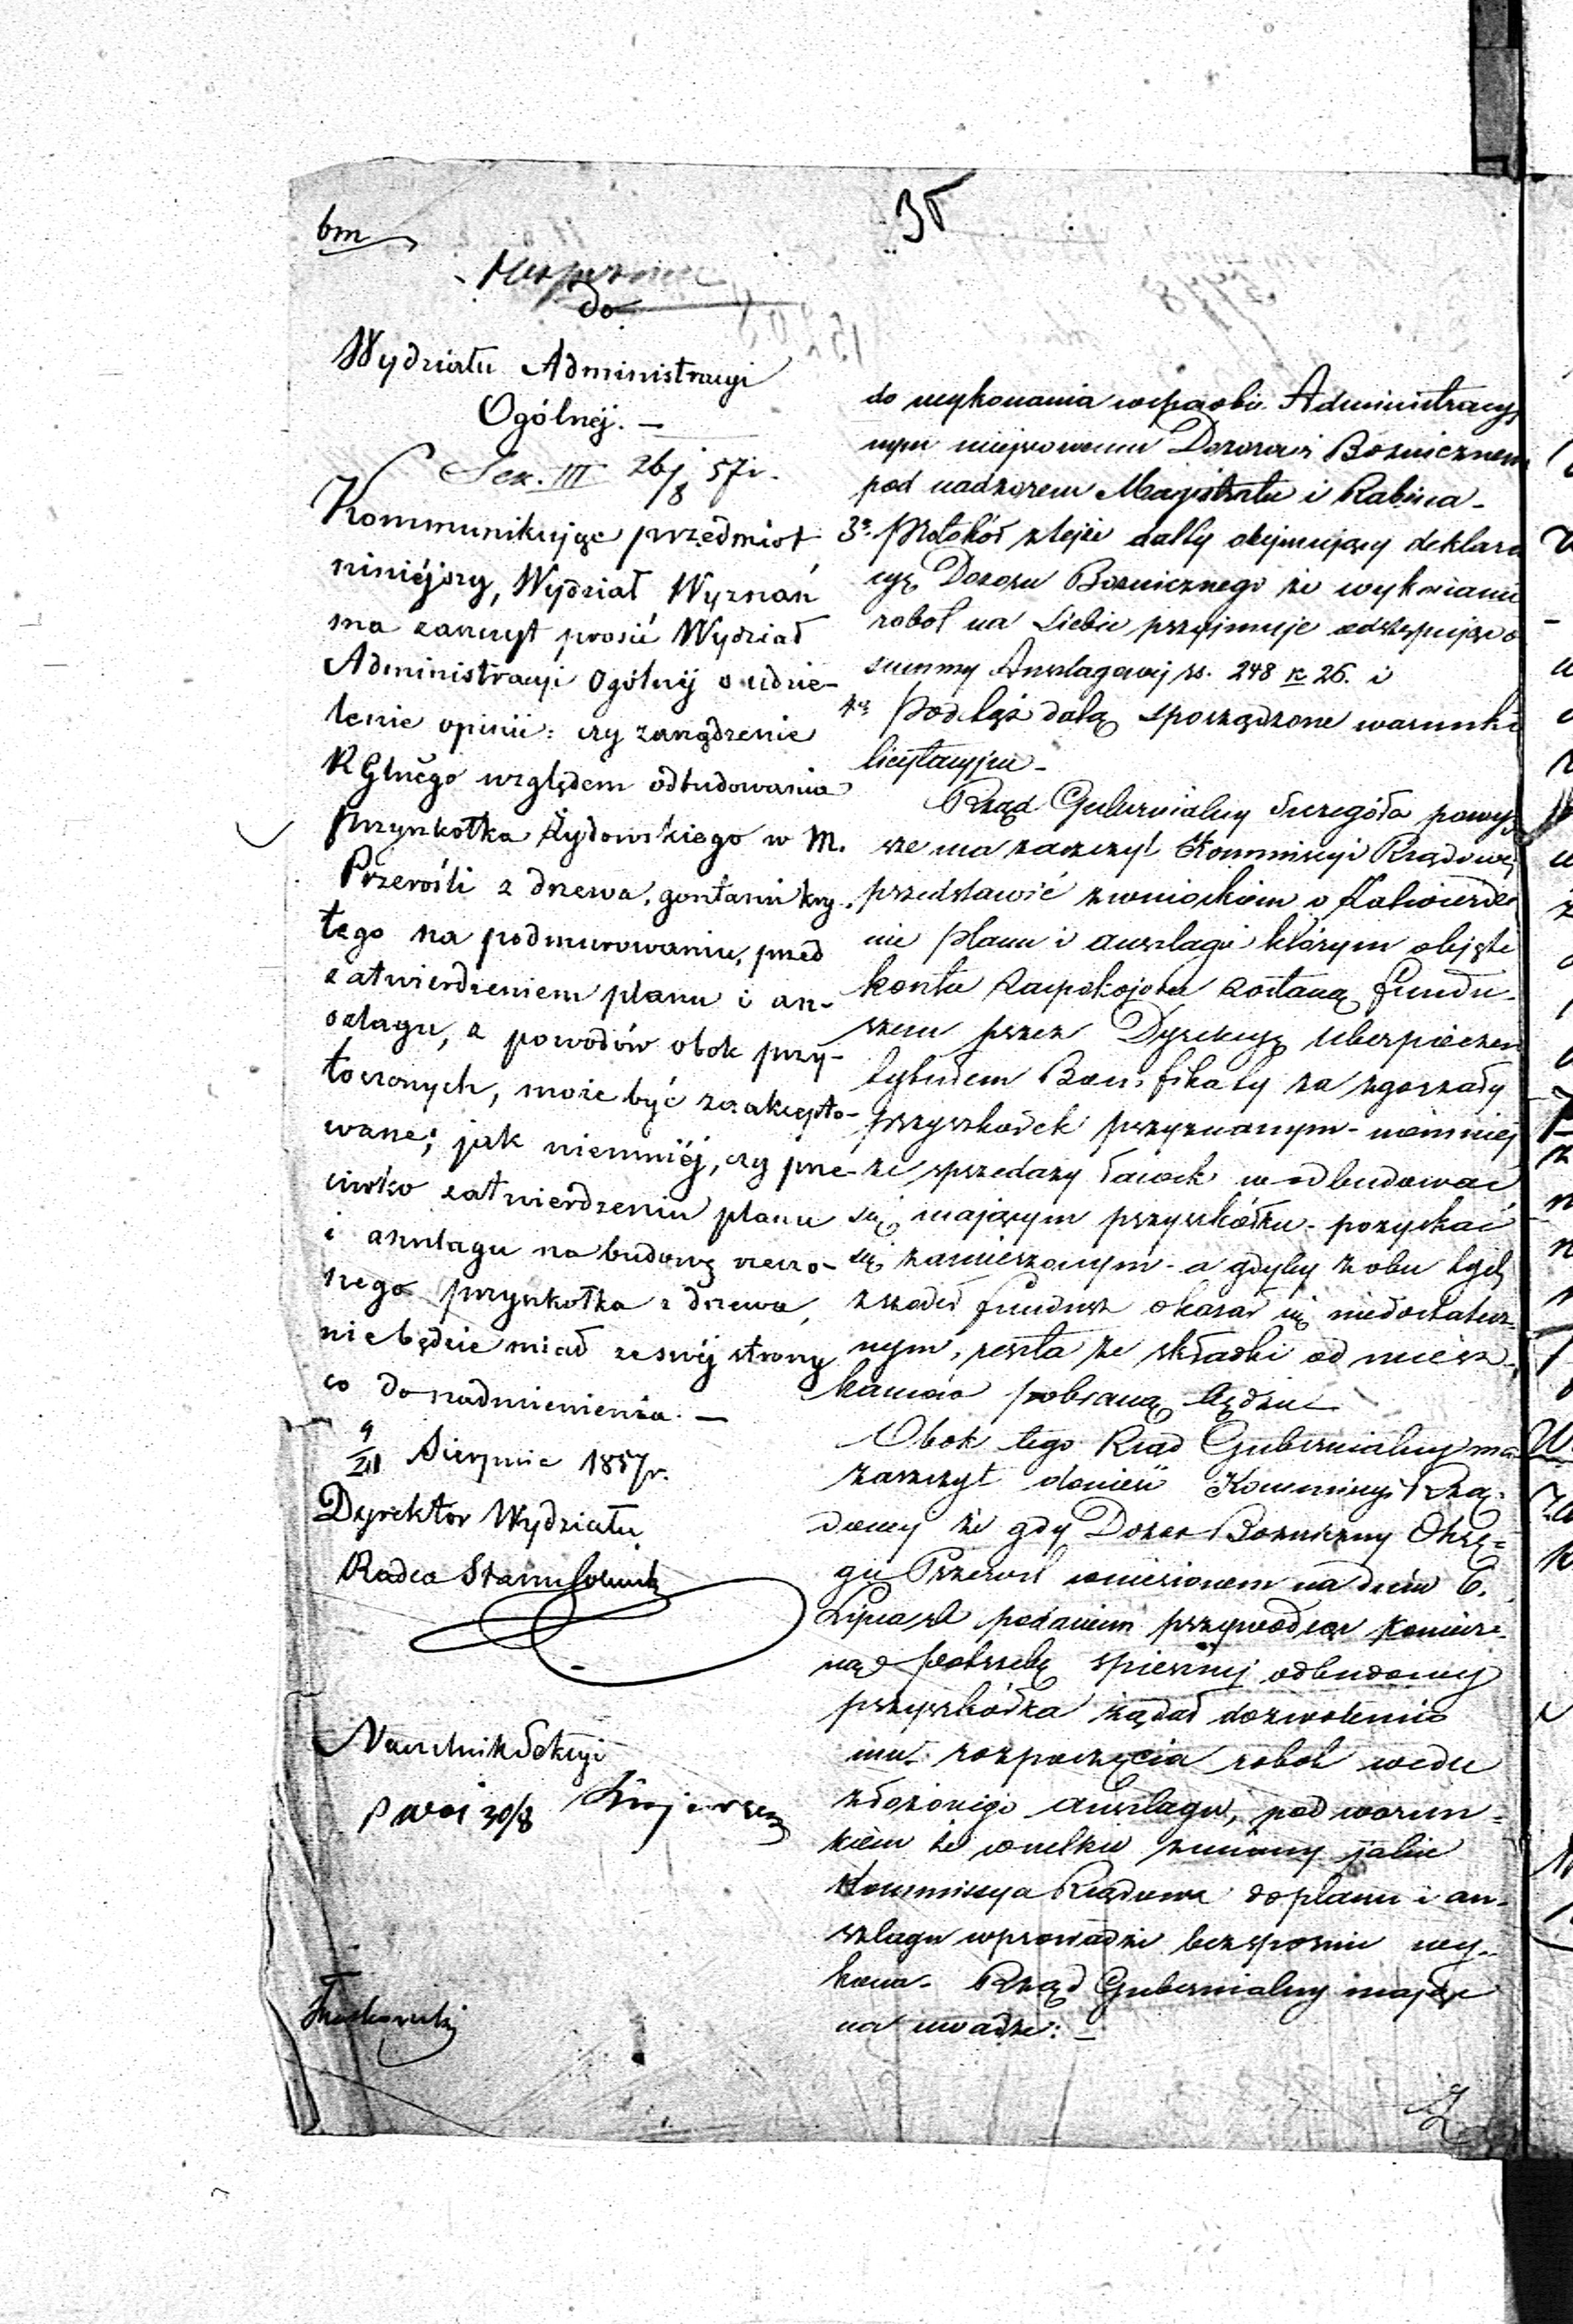 35
bm
do
Wydziału Administracyi
Ogólnéj. —
Sek. III 26/8 57 r.
Kommunikując przedmiot
niniéjszy, Wydział Wyznań
ma zaszczyt prosić Wydział
Administracyi Ogólnéj o udzie-
lenie opinii: czy zarządzenie
R Glnego względem odbudowania
przyszkołka Żydowskiego w M.
Przerośli z drzewa, gontami kry-
tego na podmurowaniu, przed
zatwierdzeniem planu i an-
szlagu, z powodów obok przy-
toczonych, może być zaakcepto-
wane; jak niemniéj, czy prze-
ciwko zatwierdzeniu planu
i anszlagu na budowę rzeczo-
nego przyszkołka z drzewa,
nie będzie miał ze swéj strony
co do nadmienienia. —
Sierpnia 1857 r.
Dyrektor Wydziału
Radca
Naczelnik Sekcyi
30/8
do wykonania w sposobie Administracyj
nym miejscowemu Dozorowi Bożnicznem
pod nadzorem Magistratu i Rabina -
3º. Protokół z tejże datty obejmujący deklara
cyę Dozoru Bożnicznego że wykonanie
robot na siebie przyjmuje odstępując o
summy Anszlagowej rs. 248 k 26. i
4º Pod tąż datą sporządzone warunki
licytacyjne -
Rząd Gubernialny Szczegóła powy
sze ma zaszczyt Kommissyi Rządowej
przedstawić z wnioskiem o Zatwierdze
nie planu i anszlagu, którym objęte
koszta zaspokojone zostaną fundu-
szem przez Dyrekcyę Ubezpieczeń
tytułem Bonifikaty za zgorzały
przyszkołek przyznanym - niemniej
ze sprzedaży ławek w odbudować
się mającym przyszkołku - pozyskać
się zamierzonym - a gdyby z obu tych
zrzodeł fundusz okazał się niedostatecz-
nym, reszta ze składki od miesz-
kańców pobraną będzie
Obok tego Rząd Gubernialny ma
zaszczyt donieść Kommissyi Rzą-
dowej że gdy Dozor Bożniczny Okrę-
gu Przerośl wniesionem na dniu 6.
Lipca podaniem przywodząc koniecz-
ną potrzebę spiesznej odbudowy
przyszkołka żądał dozwolenia
mu rozpoczęcia robot wedle
złożonego anszlagu, pod warun-
kiem że wszelkie zmiany jakie
Kommissya Rządowa do planu i an-
szlagu wprowadzi bezspornie wy-
kona - Rząd Gubernialny mając
na uwadze: -